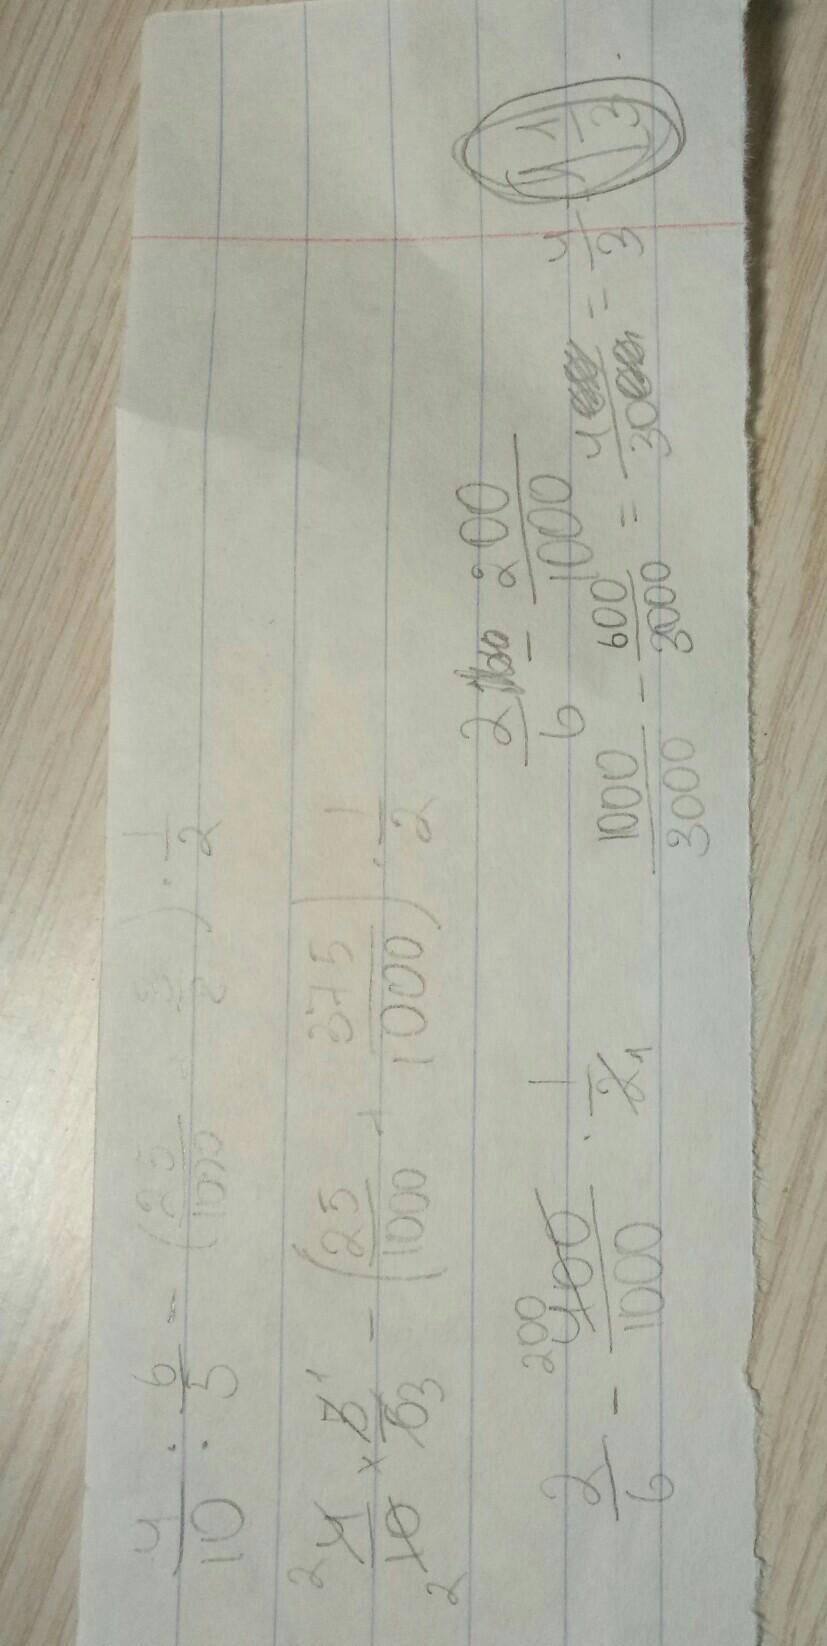 4/10 : 6/5 - (25/1000 + 3/8) · 1/2
2 4/10 2 × 5 1/6 3 - (25/1000 + 375/1000) · 1/2
2/6 - 200 400/1000 · 1/2 1
2/6 - 200/1000
1000/3000 - 600/3000 = 400/3000 = 4/3 = 1 1/3